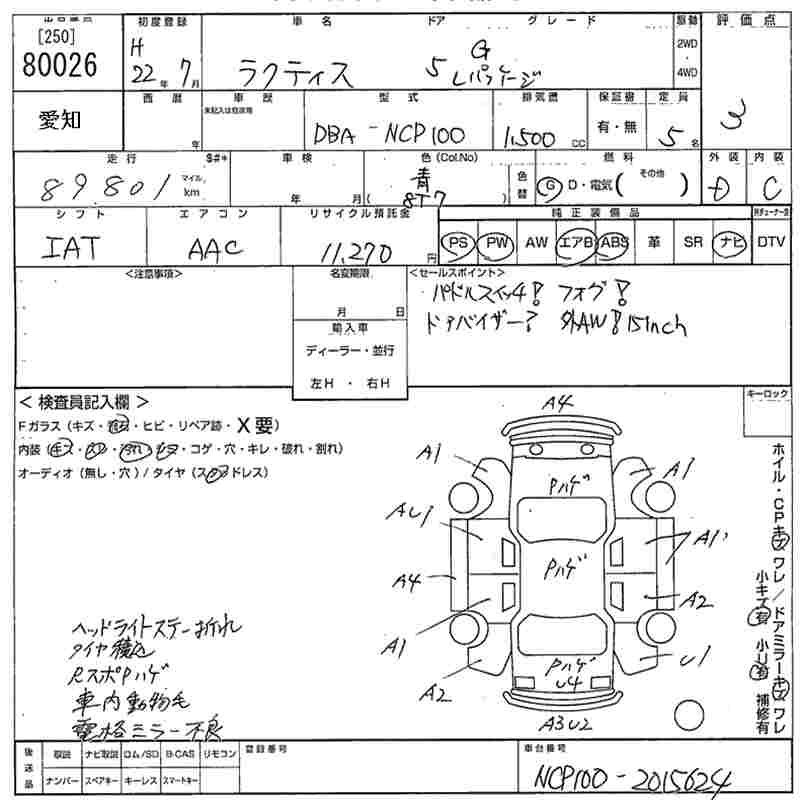 [250]
80026
愛知
初度登録
H
22年 7月
車名
ラクティス
ドア
5
グレード
G
Lパッケージ
駆動
2WD
4WD
評価点
3
西暦
年
車歴
未記入は自家用
型式
DBA - NCP100
排気量
1,500 cc
保証書
有・無
定員
5名
走行
89,801
マイル
km
$#*
車検
年 月
色(Col.No)
青
( 8T7 )
色替
燃料
G D・電気( その他 )
外装
D
内装
C
シフト
IAT
エアコン
AAC
リサイクル預託金
11,270 円
純正装備品
PS PW AW エアB ABS 革 SR ナビ DTV
<注意事項>
名変期限
月 日
輸入車
ディーラー・並行
左H ・ 右H
<セールスポイント>
パドルスイッチ! フォグ!
ドアバイザー! 外AW! 15inch
< 検査員記入欄 >
Fガラス (キズ・ ・ヒビ・リペア跡・X要)
内装 (キズ・ ・ ・ ・コゲ・穴・キレ・破れ・割れ)
オーディオ (無し・穴) / タイヤ (スタッドレス)
キーロック
A4
A1
A1
Pハゲ
AU1
A1
PハゲA4
A2
A1
A2
Pハゲ
U4
U1
A3U2
ホイル・CPキズワレ/ドアミラーキズワレ
小キズ有 小U有 補修有
ヘッドライトステー折れ
タイヤ積込
RスポPハゲ
車内動物毛
電格ミラー不良
後送品
取説 ナビ取説 ロム/SD B-CAS リモコン
ナンバー スペアキー キーレス スマートキー
登録番号
車台番号
NCP100-2015624